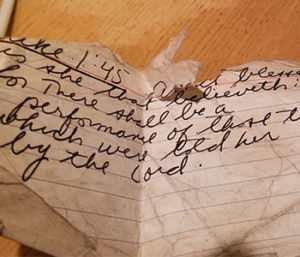 uke 1:45 And blesse
is she that believeth:
for There shall be a
performane of those t
which were told her
by the Lord.